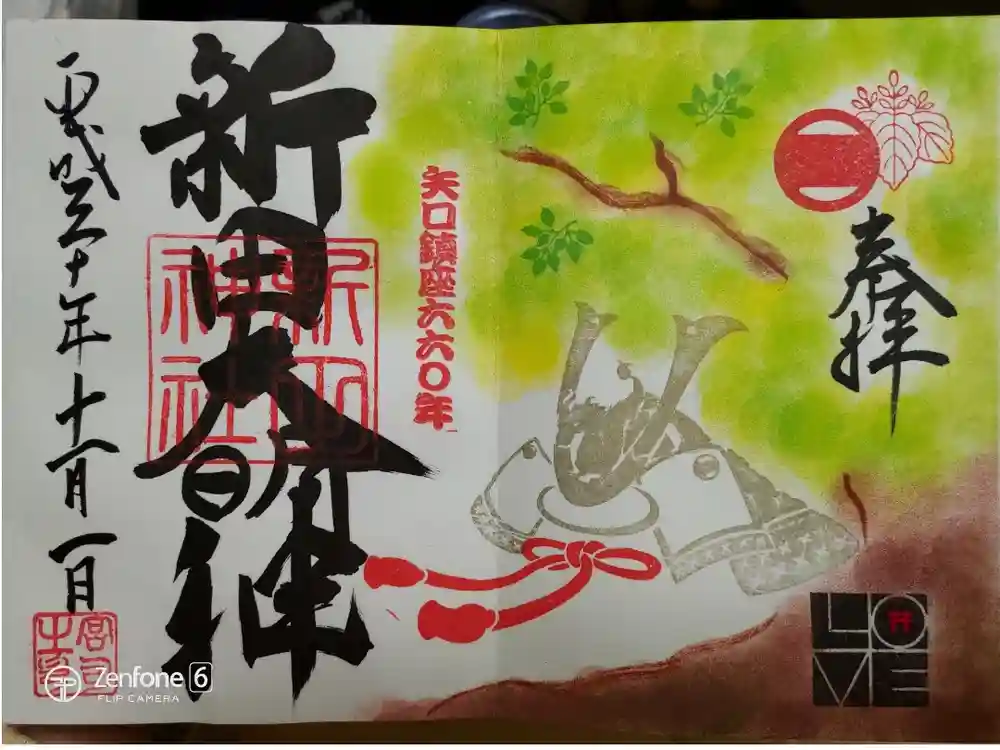 奉拝
矢口鎮座六六〇年
新田大明神
新田神社
平成三十年十一月一日
LOVE
Zenfone 6
FLIP CAMERA